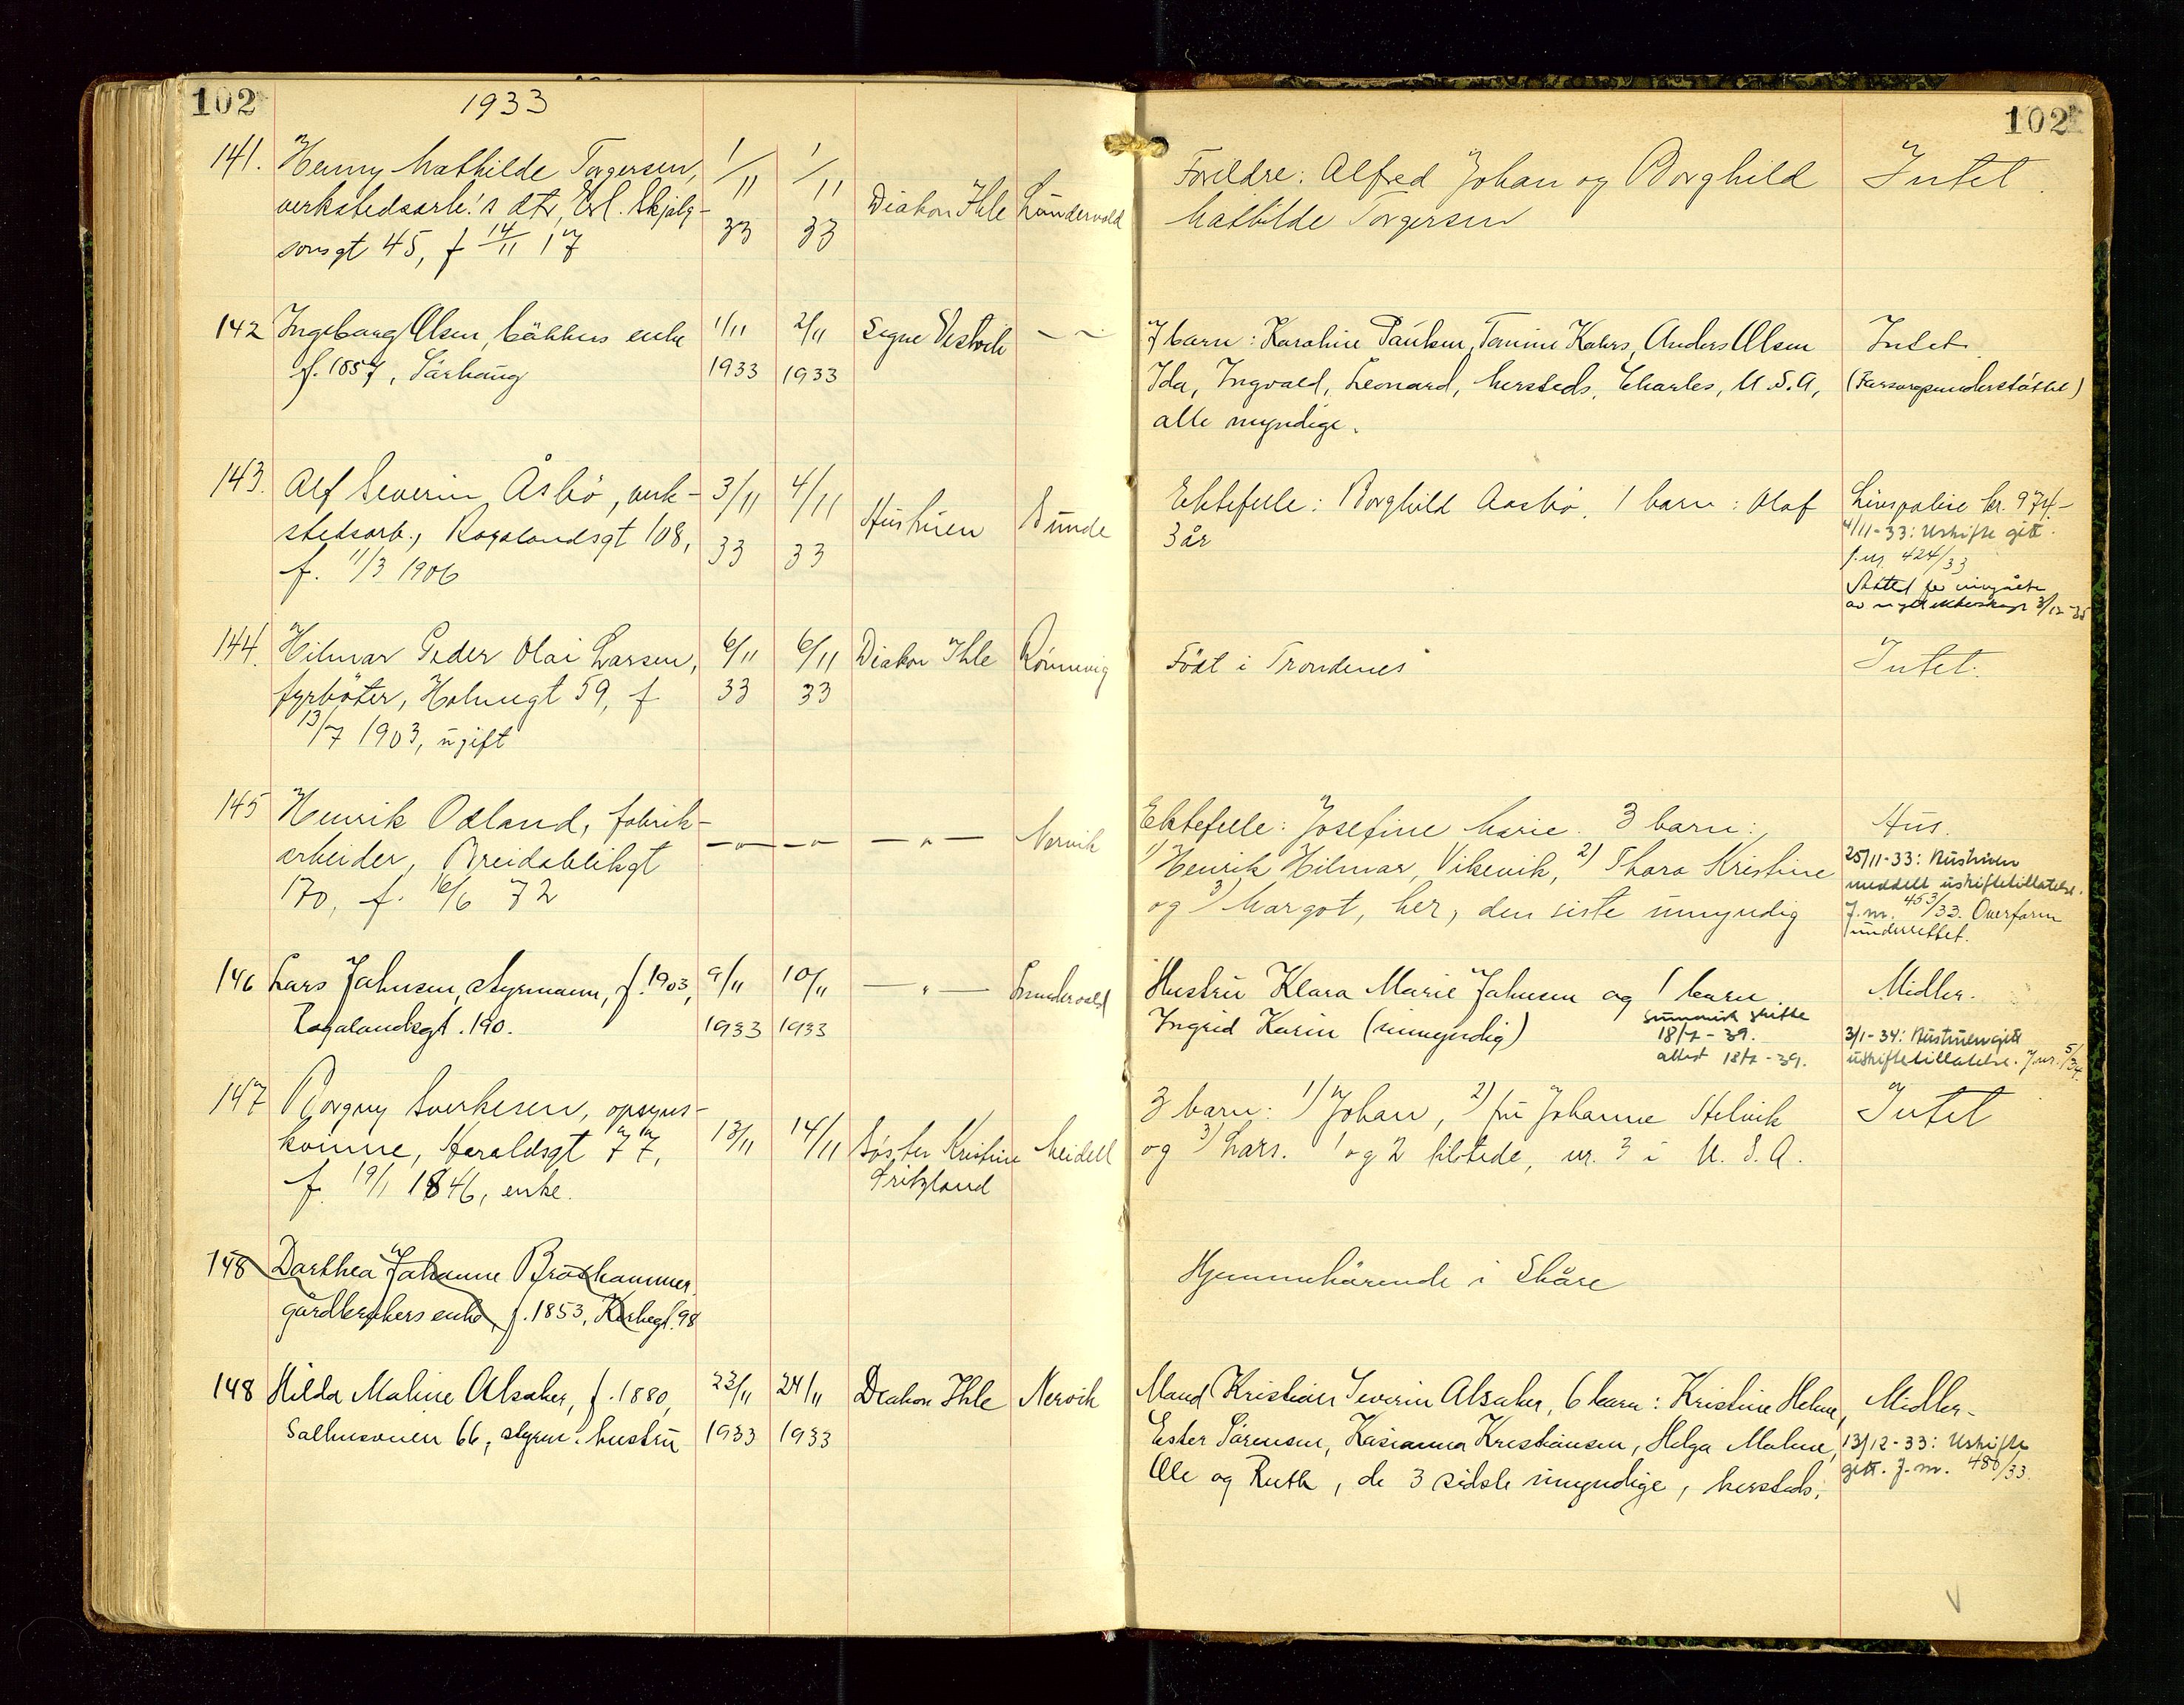 102
1933
102
141. Henny Mathilde Torgersen,
verkstedsarb.'s dtr, Erl. Skjalg-
sonsgt 45, f 14/11 17
1/11 33
1/11 33
Diakon Ihle
Lundervold
Foreldre: Alfred Johan og Borghild
Mathilde Torgersen
Intet.
142 Ingeborg Olsen, enke
f. 1857, Sørhaug
1/11 1933
2/11 1933
Signe Vestvik
— " —
7 barn: Karoline Paulsen, Tomine Anders Olsen
Ida, Ingvald, Leonard, hersteds, Charles, U.S.A,
alle myndige.
Intet.
(Forsorgsunderstøttet)
143. Alf Severin Åsbö, verk-
stedsarb., Rogalandsgt 108,
f. 11/3 1906
3/11 33
4/11 33
Hustruen
Bunde
Ektefelle: Borghild Aasbö. 1 barn: Olaf
3 år
Livspolise kr. 974-
4/11-33: Uskifte gitt.
J.nr. 424/33
Skiftet før inngåelse
av nytt ekteskap 3/12-35
144. Hilmar Peder Olai Larsen,
fyrböter, Holmegt 59, f
13/7 1903, ugift
6/11 33
6/11 33
Diakon Ihle
Rönnevig
Födt i Trondenes
Intet.
145 Henrik Ödland, fabrik-
arbeider, Breidablikgt
170, f. 16/6 72
— " —
— " —
— " —
Nervik
Ektefelle: Josefine Marie. 3 barn:
1) Henrik Hilmar, Vikevik, 2) Thora Kristine
og 3) Margot, her, den siste umyndig
Hus.
25/11-33: Hustruen
meddelt uskiftetillatelse.
J.nr. 453/33. Overform.
underrettet.
146 Lars Johnsen, styrmann, f. 1903,
Rogalandsgt. 190.
9/11 1933
10/11 1933
— " —
Lundervold
Hustru Klara Marie Johnsen og 1 barn.
Ingrid Karin (umyndig)
Summarisk skifte
18/7-39.
attest 18/7-39.
Midler.
3/1-34: Hustruen gitt
uskiftetillatelse. J.nr. 5/34.
147 Borgny Sverkesen, opsyns-
kvinne, Haraldsgt 77,
f. 19/1 1846, enke.
13/11
14/11
Søster Kristine
Fritzland
Meidell
3 barn: 1) Johan, 2) fru Johanne Stelvik
og 3) Lars. 1 og 2 tilstede, nr. 3 i U.S.A.
Intet
148 Dorthea Johanne Brodhammer
gårdbrukers enke, f. 1853, Kirkegt. 98
Hjemmehörende i Skåre
148 Hilda Maline Alsaker, f. 1880,
Salhusveien 66, styrm. hustru
23/11 1933
24/11 1933
Diakon Ihle
Nervik
Mand Kristian Severin Alsaker, 6 barn: Kristine Helene,
Ester Sörensen, Kasianna Kristiansen, Helga Maline,
Ole og Ruth, de 3 sidste umyndige, hersteds.
Midler-
13/12-33: Uskifte
gitt. J.nr. 480/33.